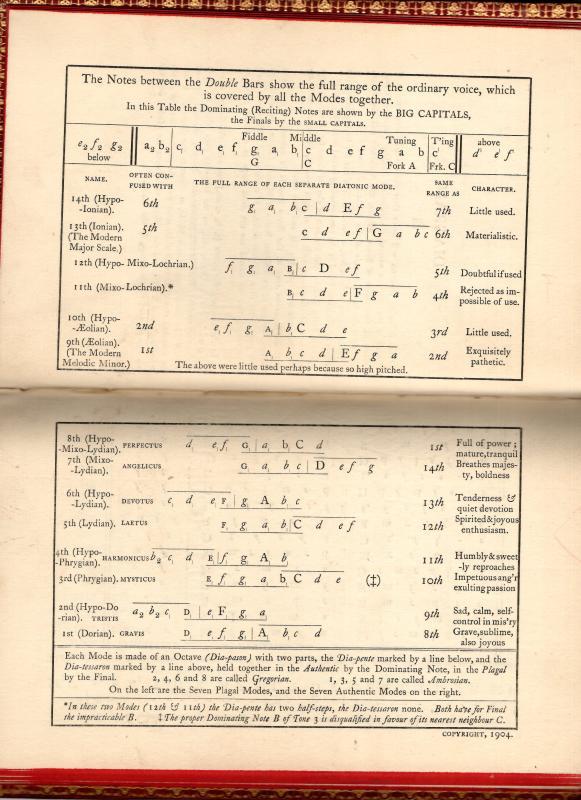 The Notes between the Double Bars show the full range of the ordinary voice, which
is covered by all the Modes together.
In this Table the Dominating (Reciting) Notes are shown by the BIG CAPITALS,
the Finals by the SMALL CAPITALS.
Fiddle Middle Tuning T'ing above
e₂ f₂ g₂ a₂ b₂ c₁ d₁ e₁ f₁ g₁ a₁ b₁ c d e f g a b c' d' e' f'
below G C Fork A Frk. C
NAME. OFTEN CONFUSED WITH THE FULL RANGE OF EACH SEPARATE DIATONIC MODE. SAME RANGE AS CHARACTER.
14th (Hypo-
-Ionian). 6th g₁ a₁ b₁ C | d E f g 7th Little used.
13th (Ionian). 5th C d e f | G a b c 6th Materialistic.
(The Modern
Major Scale.)
12th (Hypo- Mixo-Lochrian.) f₁ g₁ a₁ B₁ | c D e f 5th Doubtful if used
11th (Mixo-Lochrian).* B₁ c d e | F g a b 4th Rejected as im-
possible of use.
10th (Hypo-
-Æolian). 2nd e₁ f₁ g₁ A₁ | b₁ C d e 3rd Little used.
9th (Æolian). 1st A₁ b₁ c d | E f g a 2nd Exquisitely
(The Modern pathetic.
Melodic Minor.) The above were little used perhaps because so high pitched.
8th (Hypo-
-Mixo-Lydian). PERFECTUS d₁ e₁ f₁ G₁ | a₁ b₁ C d 1st Full of power ;
mature, tranquil
7th (Mixo-
-Lydian). ANGELICUS G₁ a₁ b₁ c | D e f g 14th Breathes majes-
ty, boldness
6th (Hypo-
-Lydian). DEVOTUS c₁ d₁ e₁ F₁ | g₁ A₁ b₁ c 13th Tenderness &
quiet devotion
5th (Lydian). LAETUS F₁ g₁ a₁ b₁ | C d e f 12th Spirited & joyous
enthusiasm.
4th (Hypo-
-Phrygian). HARMONICUS b₂ c₁ d₁ E₁ | f₁ g₁ A₁ b₁ 11th Humbly & sweet
-ly reproaches
3rd (Phrygian). MYSTICUS E₁ f₁ g₁ a₁ b₁ C d e (‡) 10th Impetuous ang'r
exulting passion
2nd (Hypo-Do
-rian). TRISTIS a₂ b₂ c₁ D₁ | e₁ F₁ g₁ a₁ 9th Sad, calm, self-
control in mis'ry
1st (Dorian). GRAVIS D₁ e₁ f₁ g₁ | A₁ b₁ c d 8th Grave, sublime,
also joyous
Each Mode is made of an Octave (Dia-pason) with two parts, the Dia-pente marked by a line below, and the
Dia-tessaron marked by a line above, held together in the Authentic by the Dominating Note, in the Plagal
by the Final. 2, 4, 6 and 8 are called Gregorian. 1, 3, 5 and 7 are called Ambrosian.
On the left are the Seven Plagal Modes, and the Seven Authentic Modes on the right.
*In these two Modes (12th & 11th) the Dia-pente has two half-steps, the Dia-tessaron none. Both have for Final
the impracticable B. ‡ The proper Dominating Note B of Tone 3 is disqualified in favour of its nearest neighbour C.
COPYRIGHT, 1904.